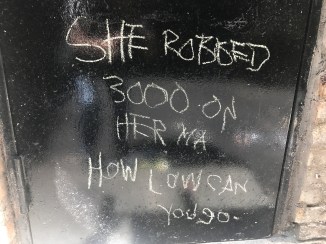 SHE ROBBED
3000 ON
HER MA
HOW LOW CAN
YOU go.